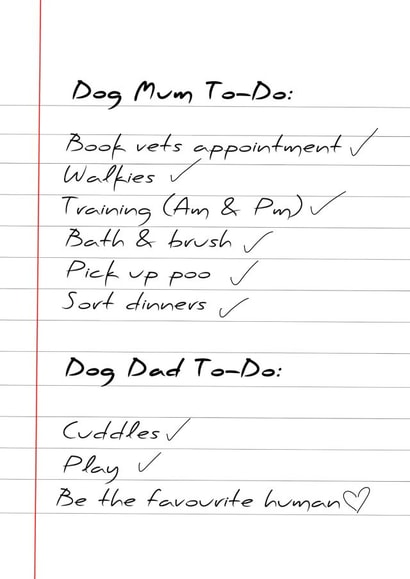 Dog Mum To-Do:
Book vets appointment ✓
Walkies ✓
Training (Am & Pm) ✓
Bath & brush ✓
Pick up poo ✓
Sort dinners ✓
Dog Dad To-Do:
Cuddles ✓
Play ✓
Be the favourite human♡